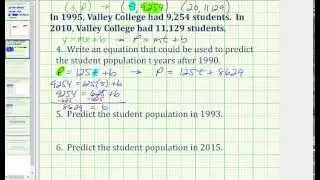 (t, P) (5, 9254) (20, 11,129)
In 1995, Valley College had 9,254 students. In
2010, Valley College had 11,129 students.
y = mx + b → P = mt + b
4. Write an equation that could be used to predict
the student population t years after 1990.
P = 125t + b → P = 125t + 8629
9254 = 125(5) + b
9254 = 625 + b
-625 -625
8629 = b
5. Predict the student population in 1993.
6. Predict the student population in 2015.